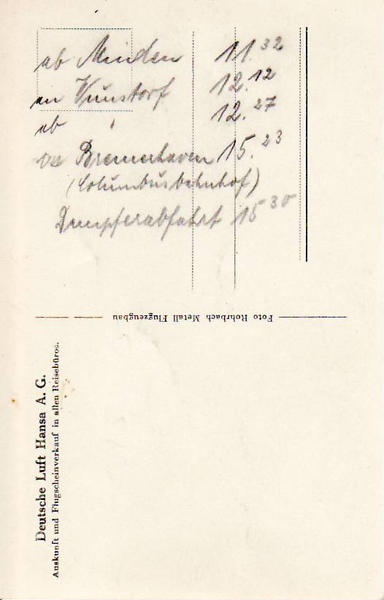 ab Minden 11.32
an Wunstorf 12.12
ab " 12.27
Bremerhaven 15.23
(Columbusbahnhof)
Dampferabfahrt 15 30
Foto Rohrbach Metall Flugzeugbau
Deutsche Luft Hansa A. G.
Auskunft und Flugscheinverkauf in allen Reisebüros.